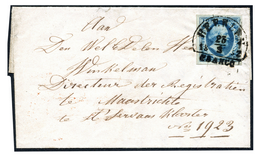 Aan
Den Wel Edelen Heer
Winkelman
Directeur der Registratien
te Maastricht
te St Servaas Klooster
No 1923
FRANCO